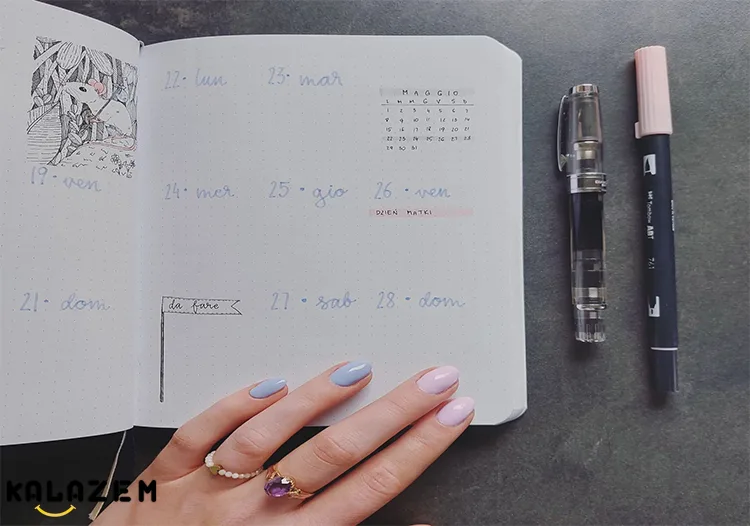 19 · ven
21 · dom
22 · lun
23 · mar
MAGGIO
L M M G V S D
1 2 3 4 5 6 7
8 9 10 11 12 13 14
15 16 17 18 19 20 21
22 23 24 25 26 27 28
29 30 31
24 · mer
25 · gio
26 · ven
DZIEŃ MATKI
da fare
27 · sab
28 · dom
Tombow ABT
761
KALAZEM